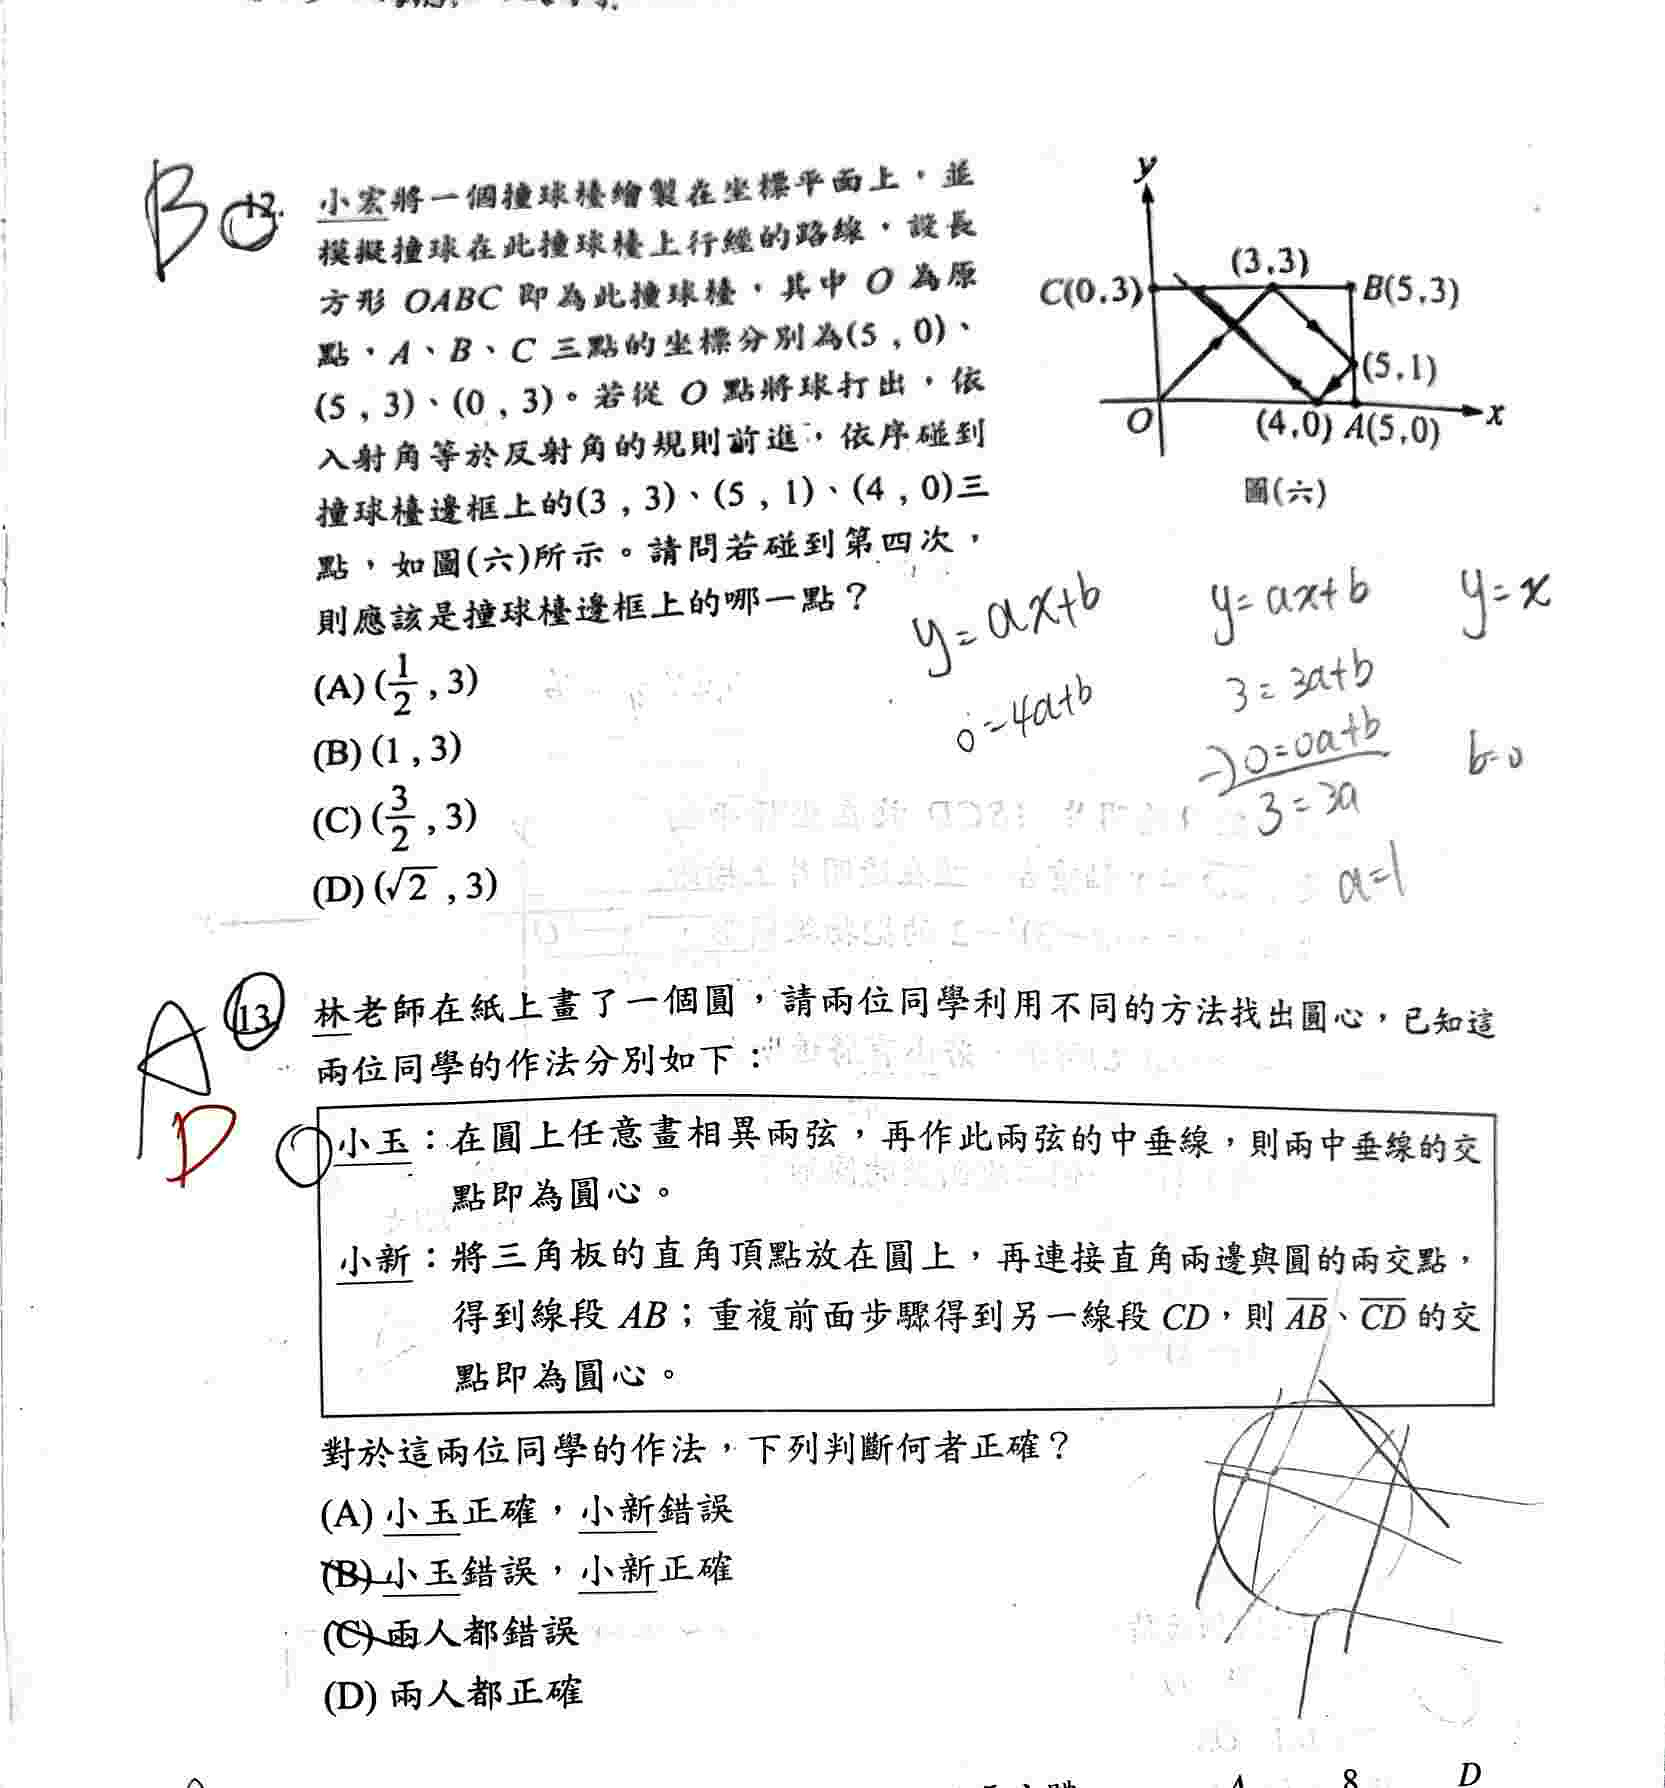 B 12. 小宏將一個撞球檯繪製在坐標平面上，並
模擬撞球在此撞球檯上行經的路線，設長
方形 OABC 即為此撞球檯，其中 O 為原
點，A、B、C 三點的坐標分別為(5 , 0)、
(5 , 3)、(0 , 3)。若從 O 點將球打出，依
入射角等於反射角的規則前進，依序碰到
撞球檯邊框上的(3 , 3)、(5 , 1)、(4 , 0)三
點，如圖(六)所示。請問若碰到第四次，
則應該是撞球檯邊框上的哪一點？
(A) (1/2 , 3)
(B) (1 , 3)
(C) (3/2 , 3)
(D) (√2 , 3)
y
C(0,3)
(3,3)
B(5,3)
(5,1)
O
(4,0)
A(5,0)
x
圖(六)
y=ax+b
0=4a+b
y=ax+b
3=3a+b
-)0=0a+b
3=3a
a=1
y=x
b=0
A
D
13 林老師在紙上畫了一個圓，請兩位同學利用不同的方法找出圓心，已知這
兩位同學的作法分別如下：
小玉：在圓上任意畫相異兩弦，再作此兩弦的中垂線，則兩中垂線的交
點即為圓心。
小新：將三角板的直角頂點放在圓上，再連接直角兩邊與圓的兩交點，
得到線段 AB；重複前面步驟得到另一線段 CD，則 AB、CD 的交
點即為圓心。
對於這兩位同學的作法，下列判斷何者正確？
(A) 小玉正確，小新錯誤
(B) 小玉錯誤，小新正確
(C) 兩人都錯誤
(D) 兩人都正確
A 8 D